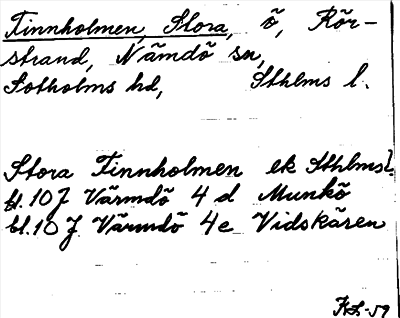 Finnholmen, Stora, ö, Rör-
strand, Nämdö sn,
Sotholms hd, Sthlms l.
Stora Finnholmen ek Sthlmsl.
bl. 10 J Värmdö 4 d Munkö
bl. 10 J Värmdö 4e Vidskären